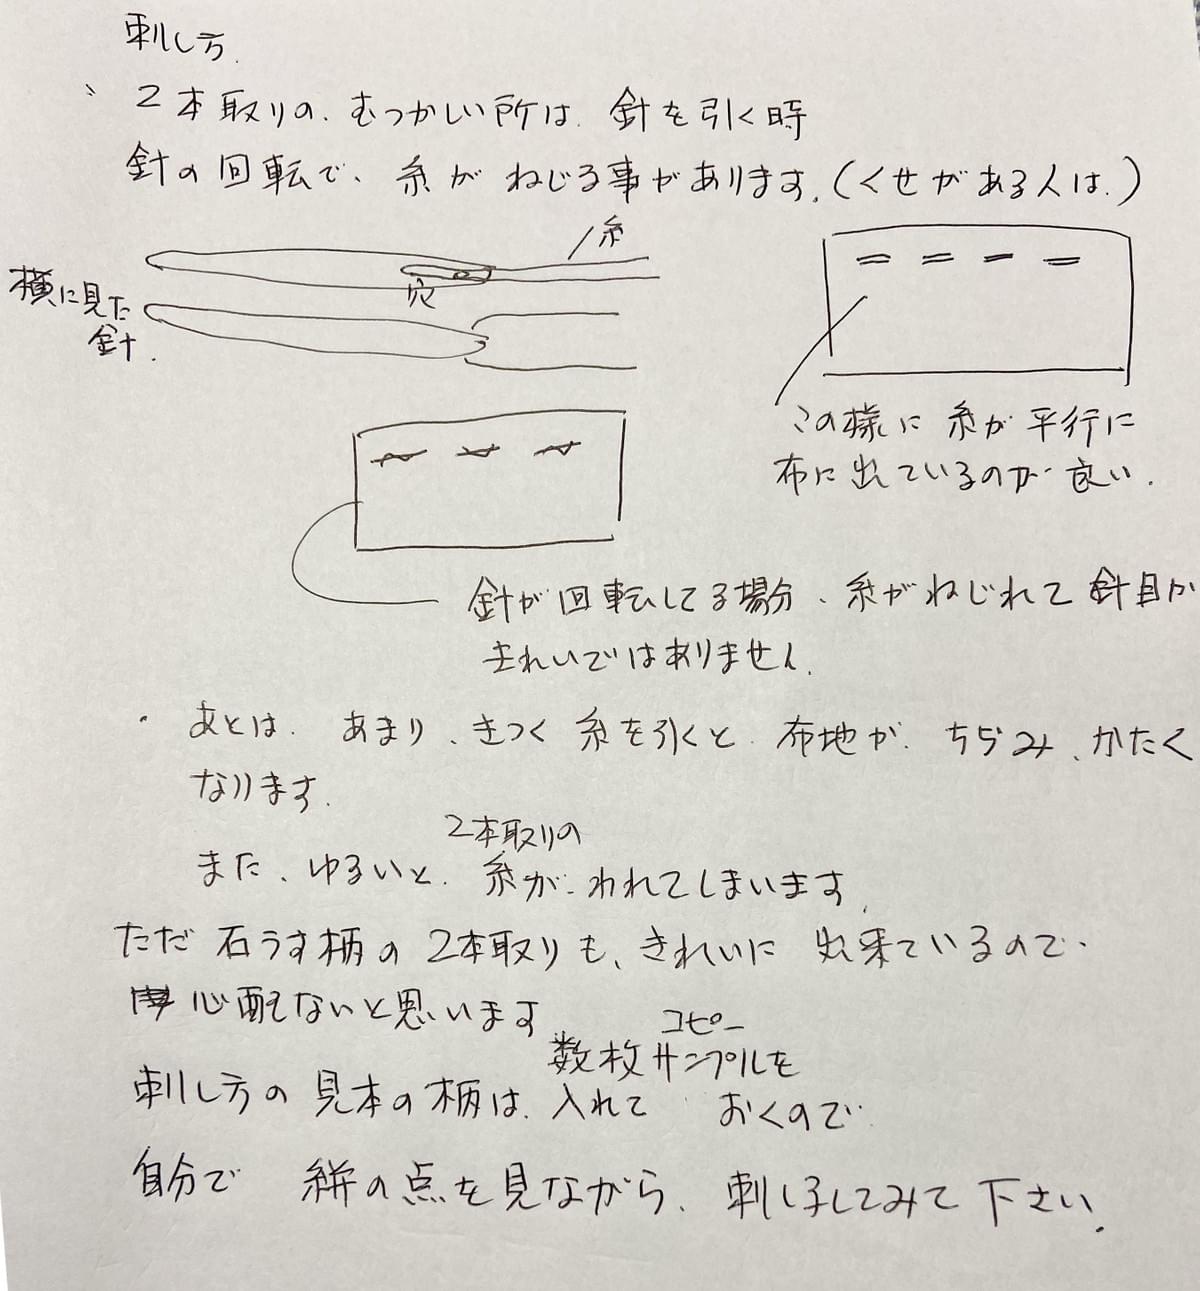 刺し方.
2本取りの、むつかしい所は、針を引く時
針の回転で、糸が ねじる事があります。(くせがある人は.)
糸
穴
横に見た
針.
この様に 糸が 平行に
布に出ているのが 良い.
針が回転してる場合、糸がねじれて 針目が
きれいではありません.
・ あとは、あまり、きつく 糸を引くと 布地が、ちぢみ、かたく
なります.
また、ゆるいと、2本取りの糸が、われてしまいます.
ただ 石うす柄の 2本取りも、きれいに 出来ているので、
心配ないと思います
刺し方の 見本の柄は、数枚 コピーサンプルを
入れて おくので
自分で 絣の点を見ながら、刺し子してみて下さい.